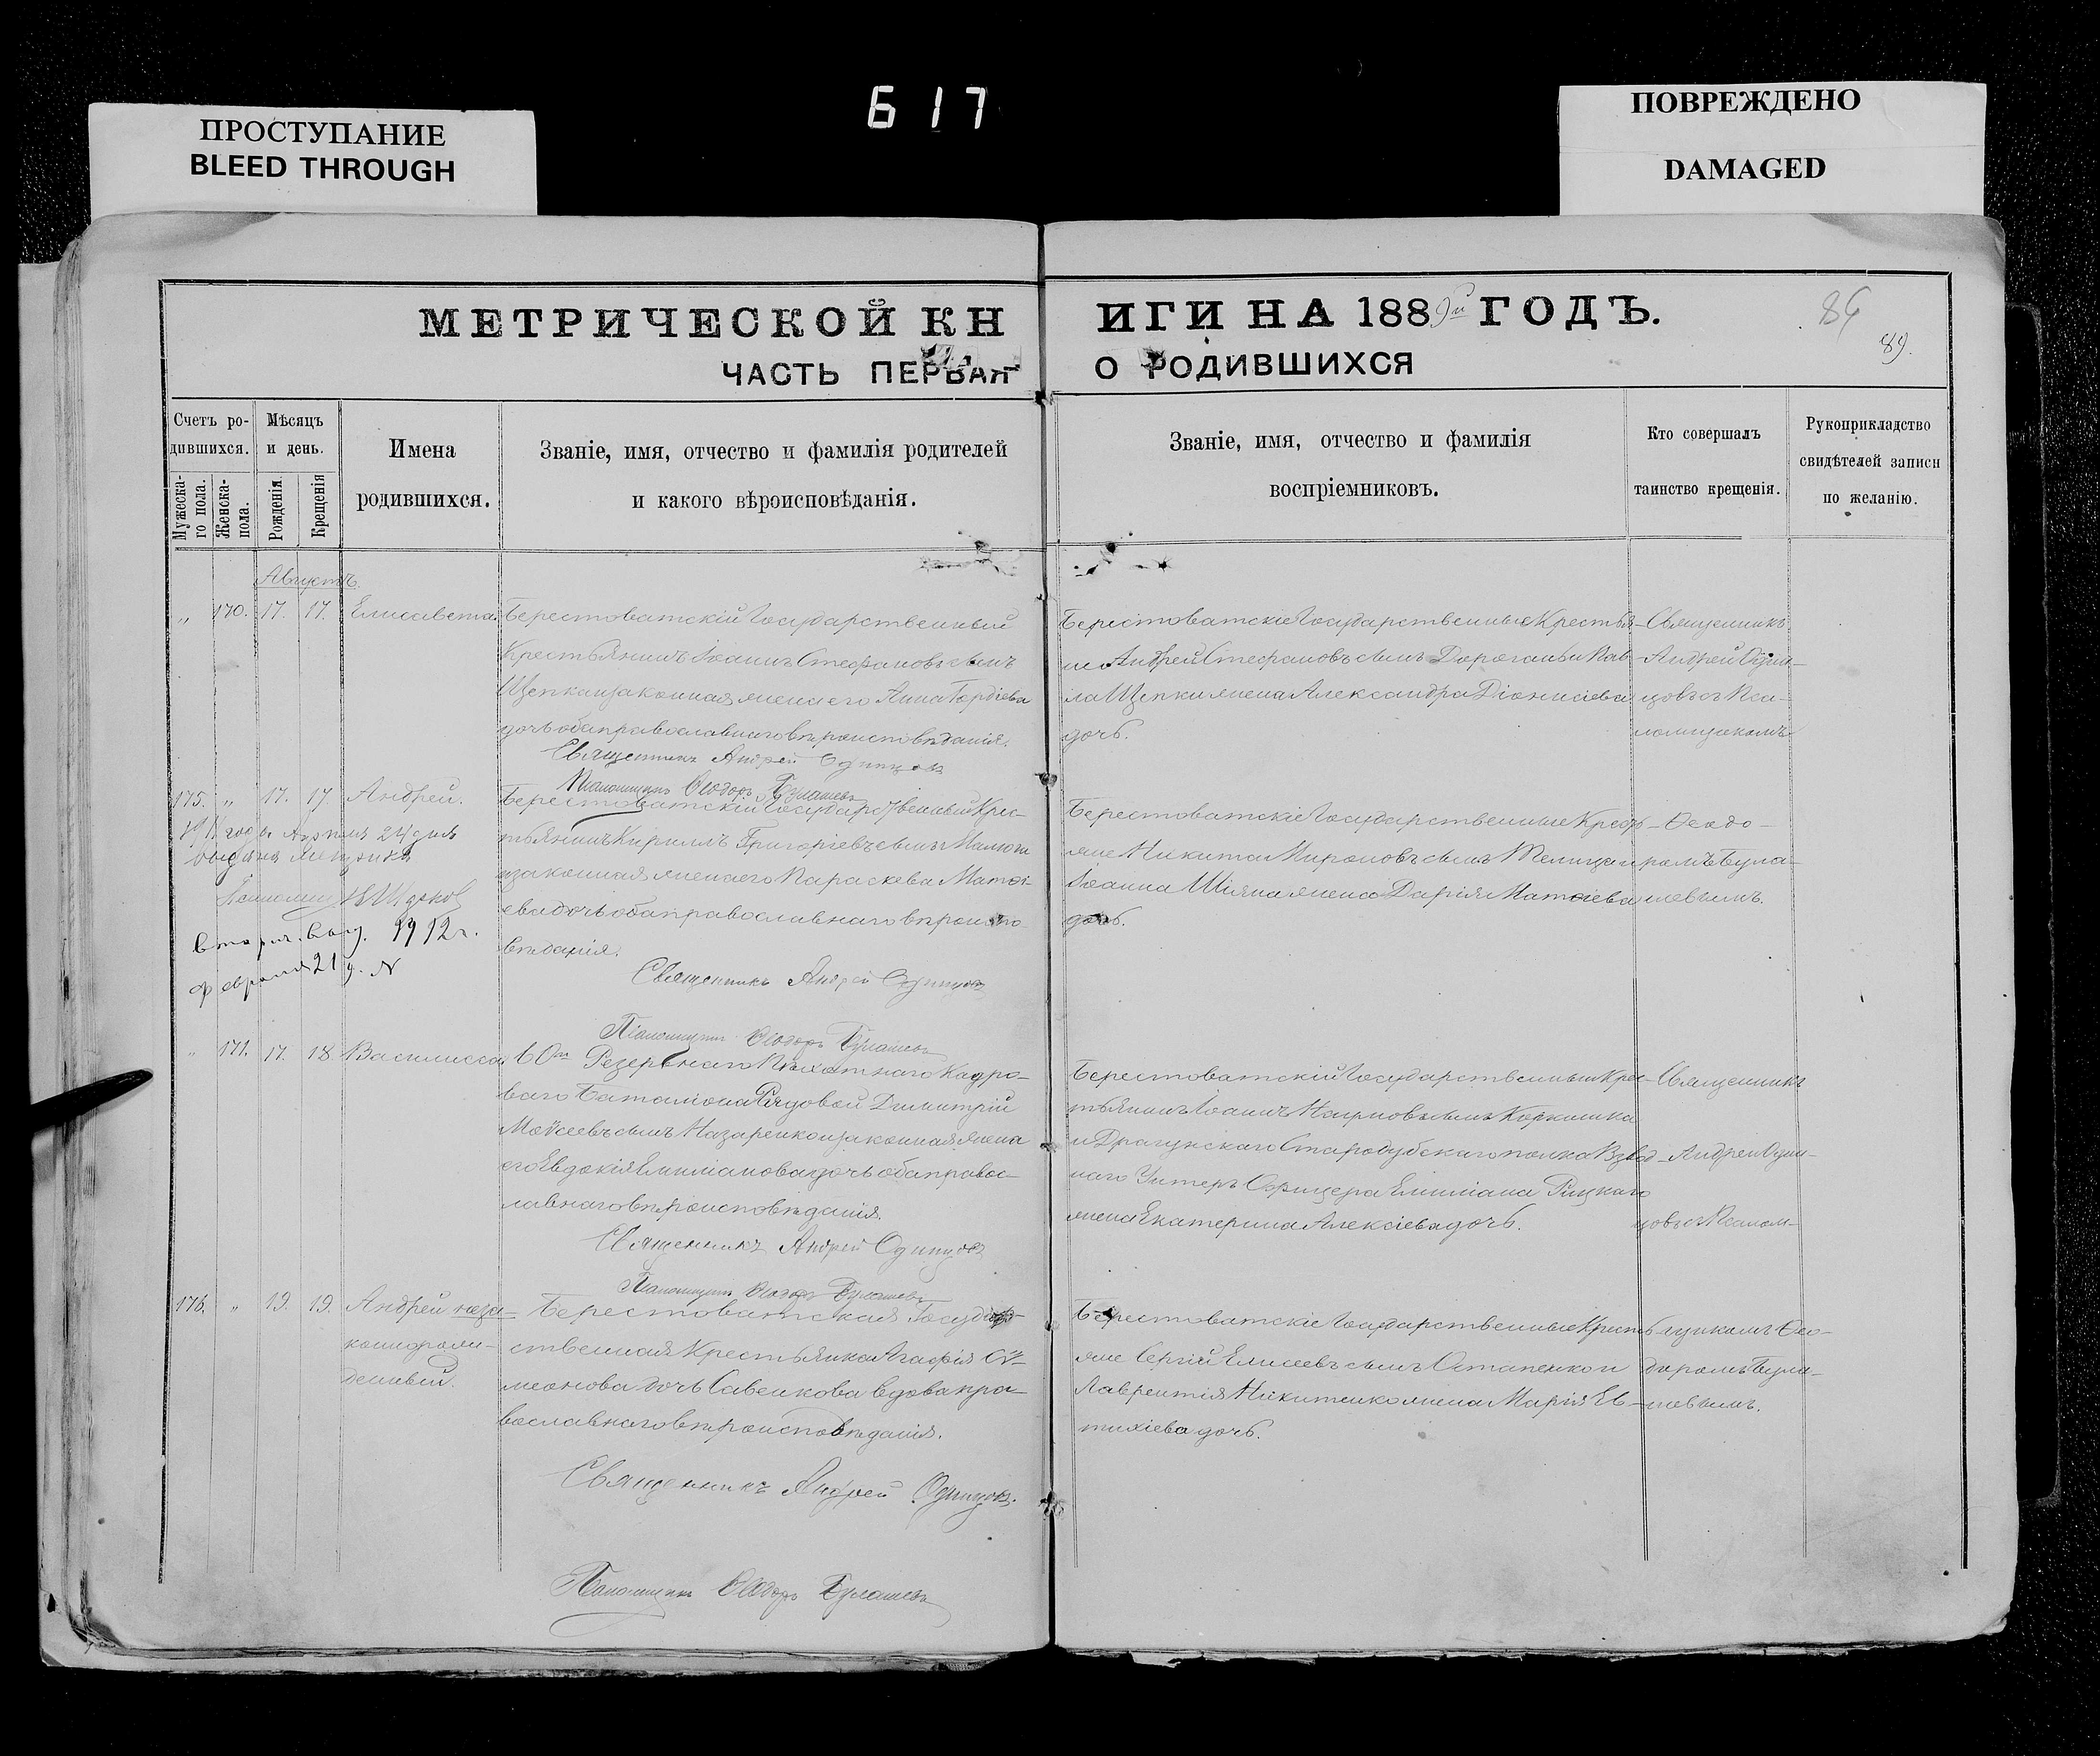 ПРОСТУПАНИЕ
BLEED THROUGH
617
ПОВРЕЖДЕНО
DAMAGED
МЕТРИЧЕСКОЙ КНИГИ НА 1889й ГОДЪ.
ЧАСТЬ ПЕРВАЯ О РОДИВШИХСЯ
86
89.
Счетъ ро-
дившихся.
Мужеска-
го пола.
Женска-
пола.
Мѣсяцъ
и день.
Рожденія.
Крещенія
Имена
родившихся.
Званіе, имя, отчество и фамилія родителей
и какого вѣроисповѣданія.
Званіе, имя, отчество и фамилія
воспріемниковъ.
Кто совершалъ
таинство крещенія.
Рукоприкладство
свидѣтелей записи
по желанію.
Августъ.
„ 170. 17. 17. Елисавета.
Берестоватскій Государственный
Крестьянинъ Іоаннъ Стефановъ сынъ
Щепка и законная жена его Анна Гордіева
дочь оба православнаго вѣроисповѣданія.
Священникъ Андрей Одинцовъ
Псаломщикъ Ѳеодоръ Булашевъ
Берестоватскіе Государственные Крестья-
не Андрей Стефановъ сынъ и Пав-
ла Щепки жена Александра Діонисіева
дочь.
Священникъ
Андрей Один-
цовъ съ Пса-
ломщикомъ
175. „ 17. 17. Андрей.
года Апреля 24 дня
выдана метрика
вторич. выд. 1912 г.
февраля 21 д. №
Берестоватскій Государственный Крес-
тьянинъ Кириллъ Григоріевъ сынъ
и законная жена его Параскева Матѳі-
ева дочь оба православнаго вѣроиспо-
вѣданія.
Священникъ Андрей Одинцовъ
Псаломщикъ Ѳеодоръ Булашевъ
Берестоватскіе Государственные Кресть-
яне Никита Мироновъ сынъ и
Іоанна жена Дарія Матѳіева
дочь.
Ѳеодо-
ромъ Була-
шевымъ.
„ 171. 17. 18. Василисса
60го Резервнаго Пѣхотнаго Кадро-
ваго Баталіона Рядовой Димитрій
Моѵсеевъ сынъ Назаренко и законная жена
его Евдокія Емиліанова дочь оба правос-
лавнаго вѣроисповѣданія.
Священникъ Андрей Одинцовъ
Псаломщикъ Ѳеодоръ Булашевъ
Берестоватскій Государственный Крес-
тьянинъ Іоаннъ Наумовъ сынъ
и Драгунскаго Стародубскаго полка Взвод-
наго Унтеръ Офицера Емиліана
жена Екатерина Алексіева дочь.
Священникъ
Андрей Один-
цовъ съ Псалом-
176. „ 19. 19. Андрей неза-
коннорож-
денный.
Берестоватская Государ-
ственная Крестьянка Агафія Сѵ-
меонова дочь Савенкова вдова пра-
вославнаго вѣроисповѣданія.
Священникъ Андрей Одинцовъ.
Псаломщикъ Ѳеодоръ Булашевъ
Берестоватскіе Государственные Кресть-
яне Сергій Елисеевъ сынъ Остапенко и
Лаврентія Никитенко жена Марія Ев-
тихіева дочь.
щикомъ Ѳео-
доромъ Була-
шевымъ.